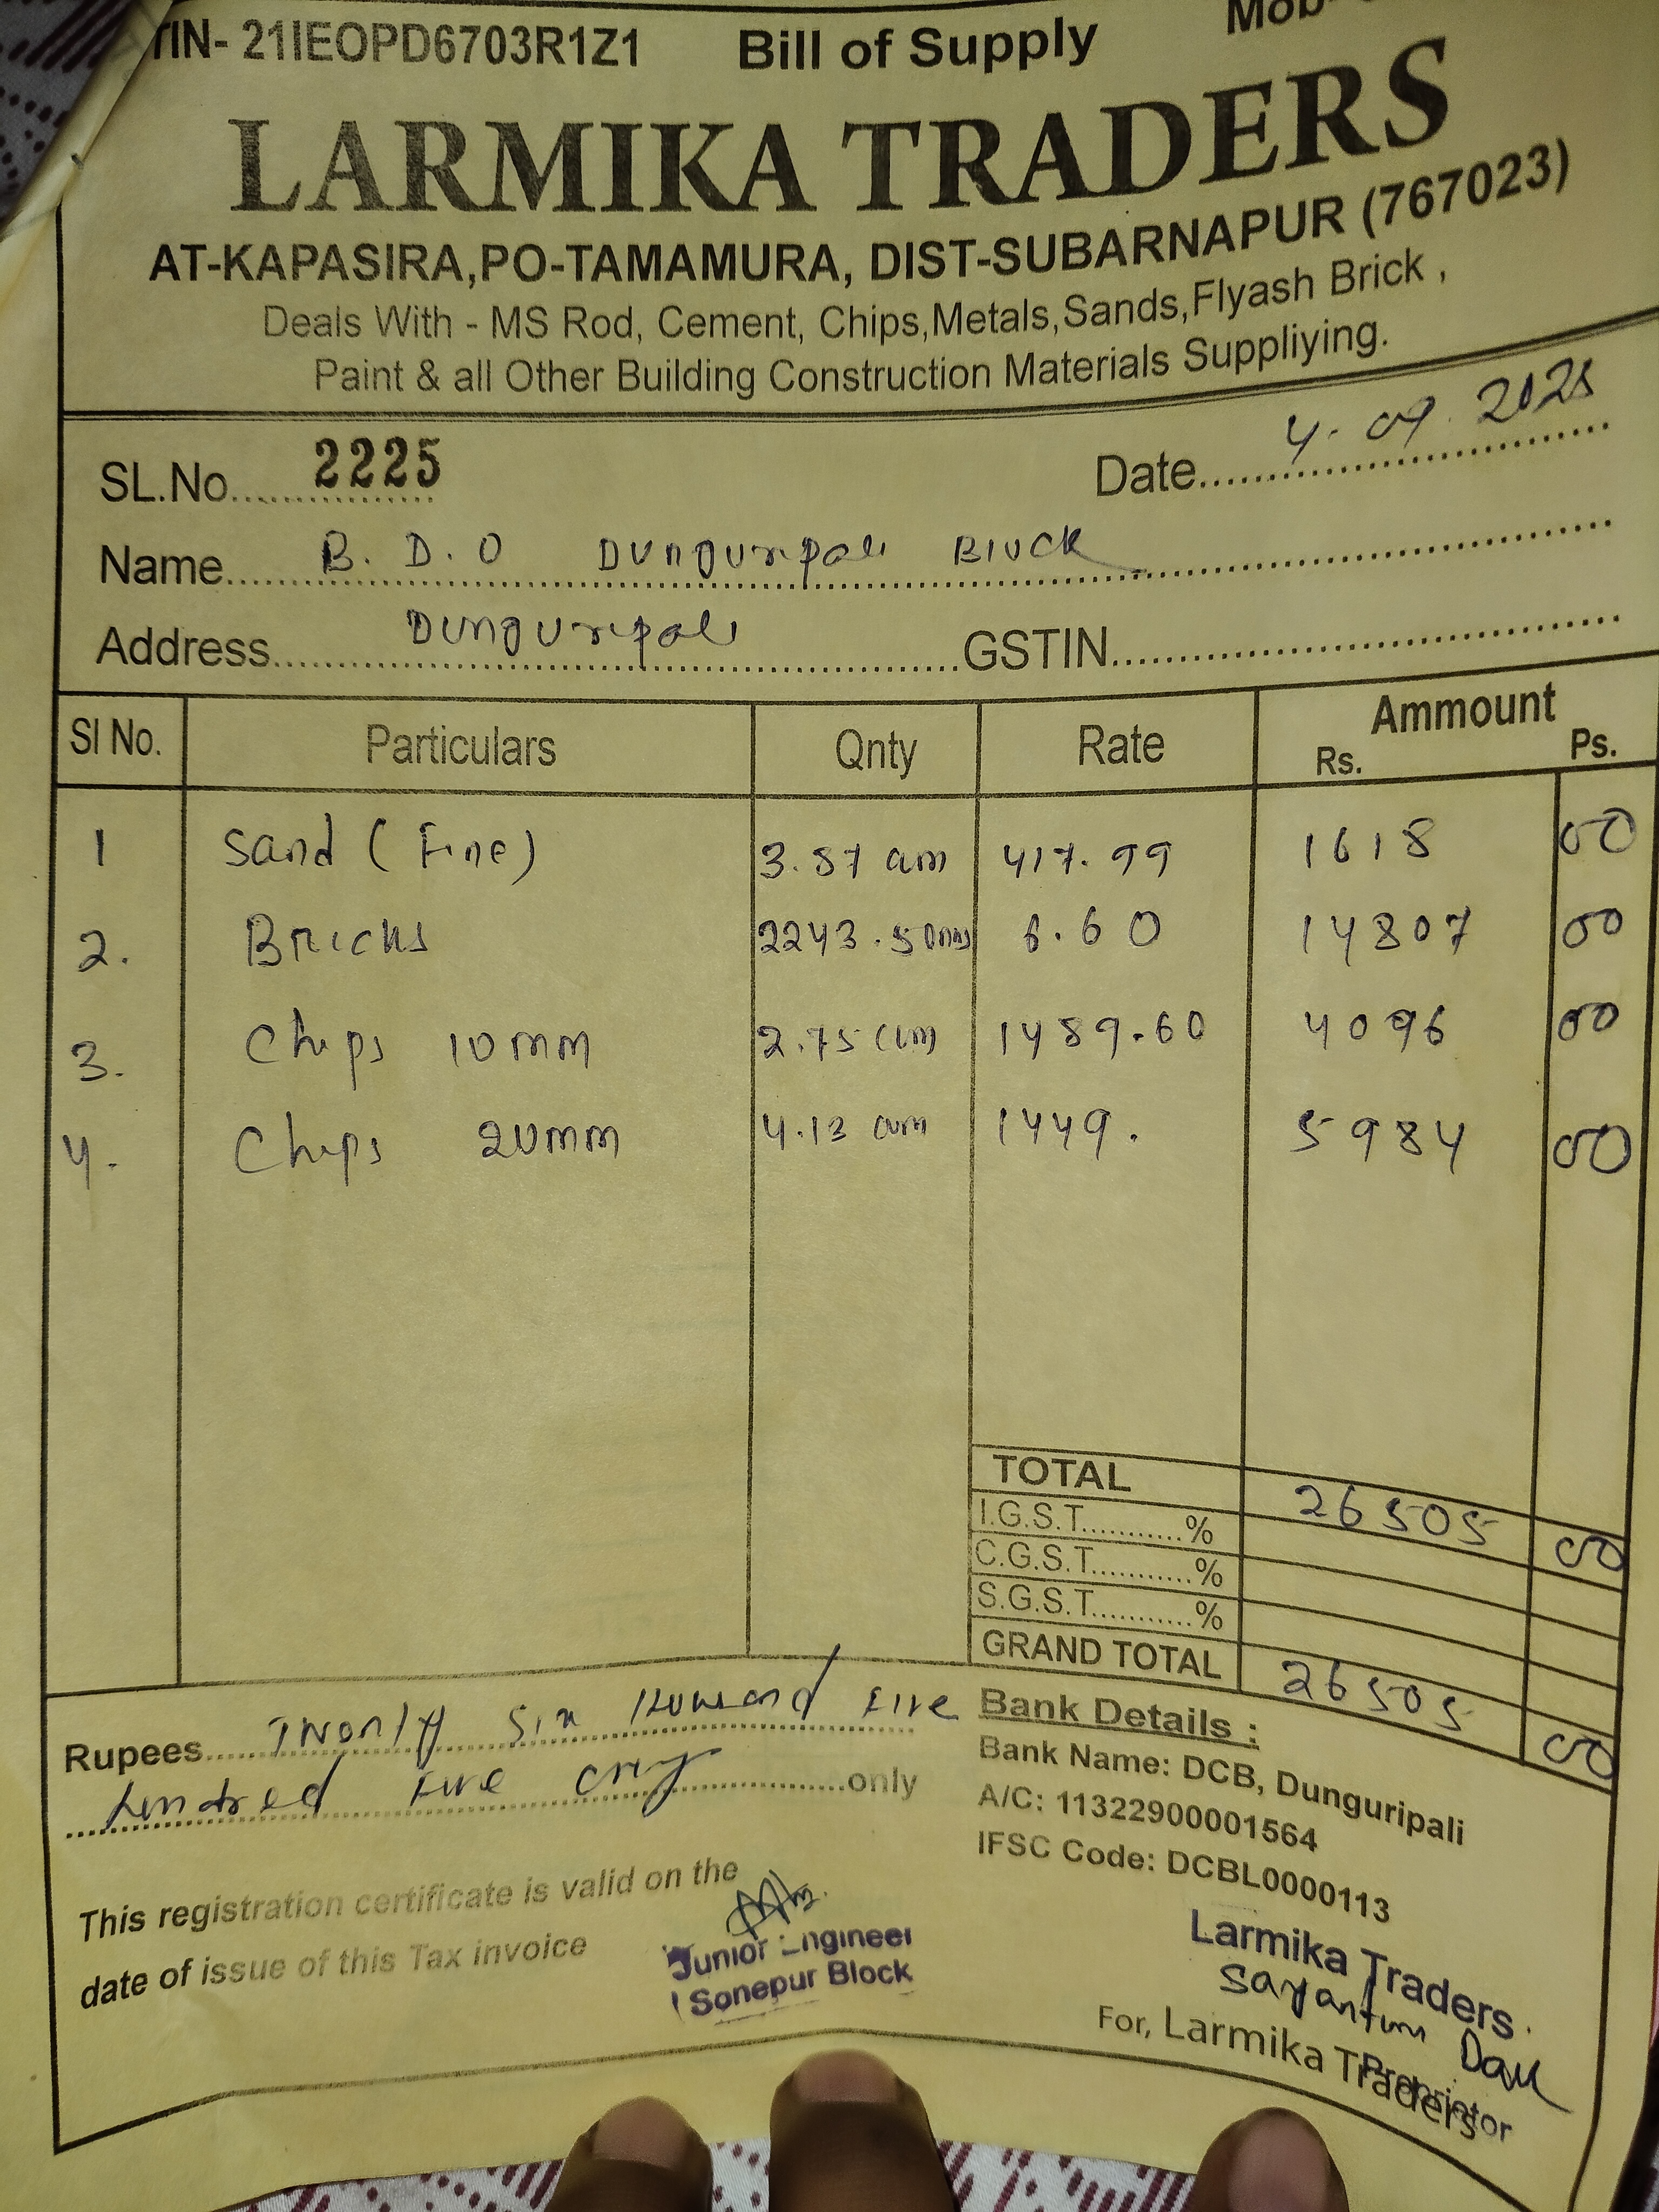 TIN- 21IEOPD6703R1Z1 Bill of Supply Mob-
LARMIKA TRADERS
AT-KAPASIRA,PO-TAMAMURA, DIST-SUBARNAPUR (767023)
Deals With - MS Rod, Cement, Chips,Metals,Sands,Flyash Brick ,
Paint & all Other Building Construction Materials Suppliying.
SL.No. 2225 Date 4-09.2025
Name B.D.O Dunguripali Block
Address Dunguripali GSTIN
Sl No. Particulars Qnty Rate Ammount
Rs. Ps.
1 Sand (Fine) 3.87 cum 417.99 1618 00
2. Bricks 2243.50 nos 6.60 14807 00
3. Chips 10mm 2.75 cum 1489.60 4096 00
4. Chips 20mm 4.13 cum 1449. 5984 00
TOTAL 26505 00
I.G.S.T. %
C.G.S.T. %
S.G.S.T. %
GRAND TOTAL 26505 00
Rupees Twenty Six Thousand Five
hundred Five only only
Bank Details :
Bank Name: DCB, Dunguripali
A/C: 11322900001564
IFSC Code: DCBL0000113
This registration certificate is valid on the
date of issue of this Tax invoice
Junior Engineer
Sonepur Block
Larmika Traders
Sayantum
For, Larmika Traders
Proprietor